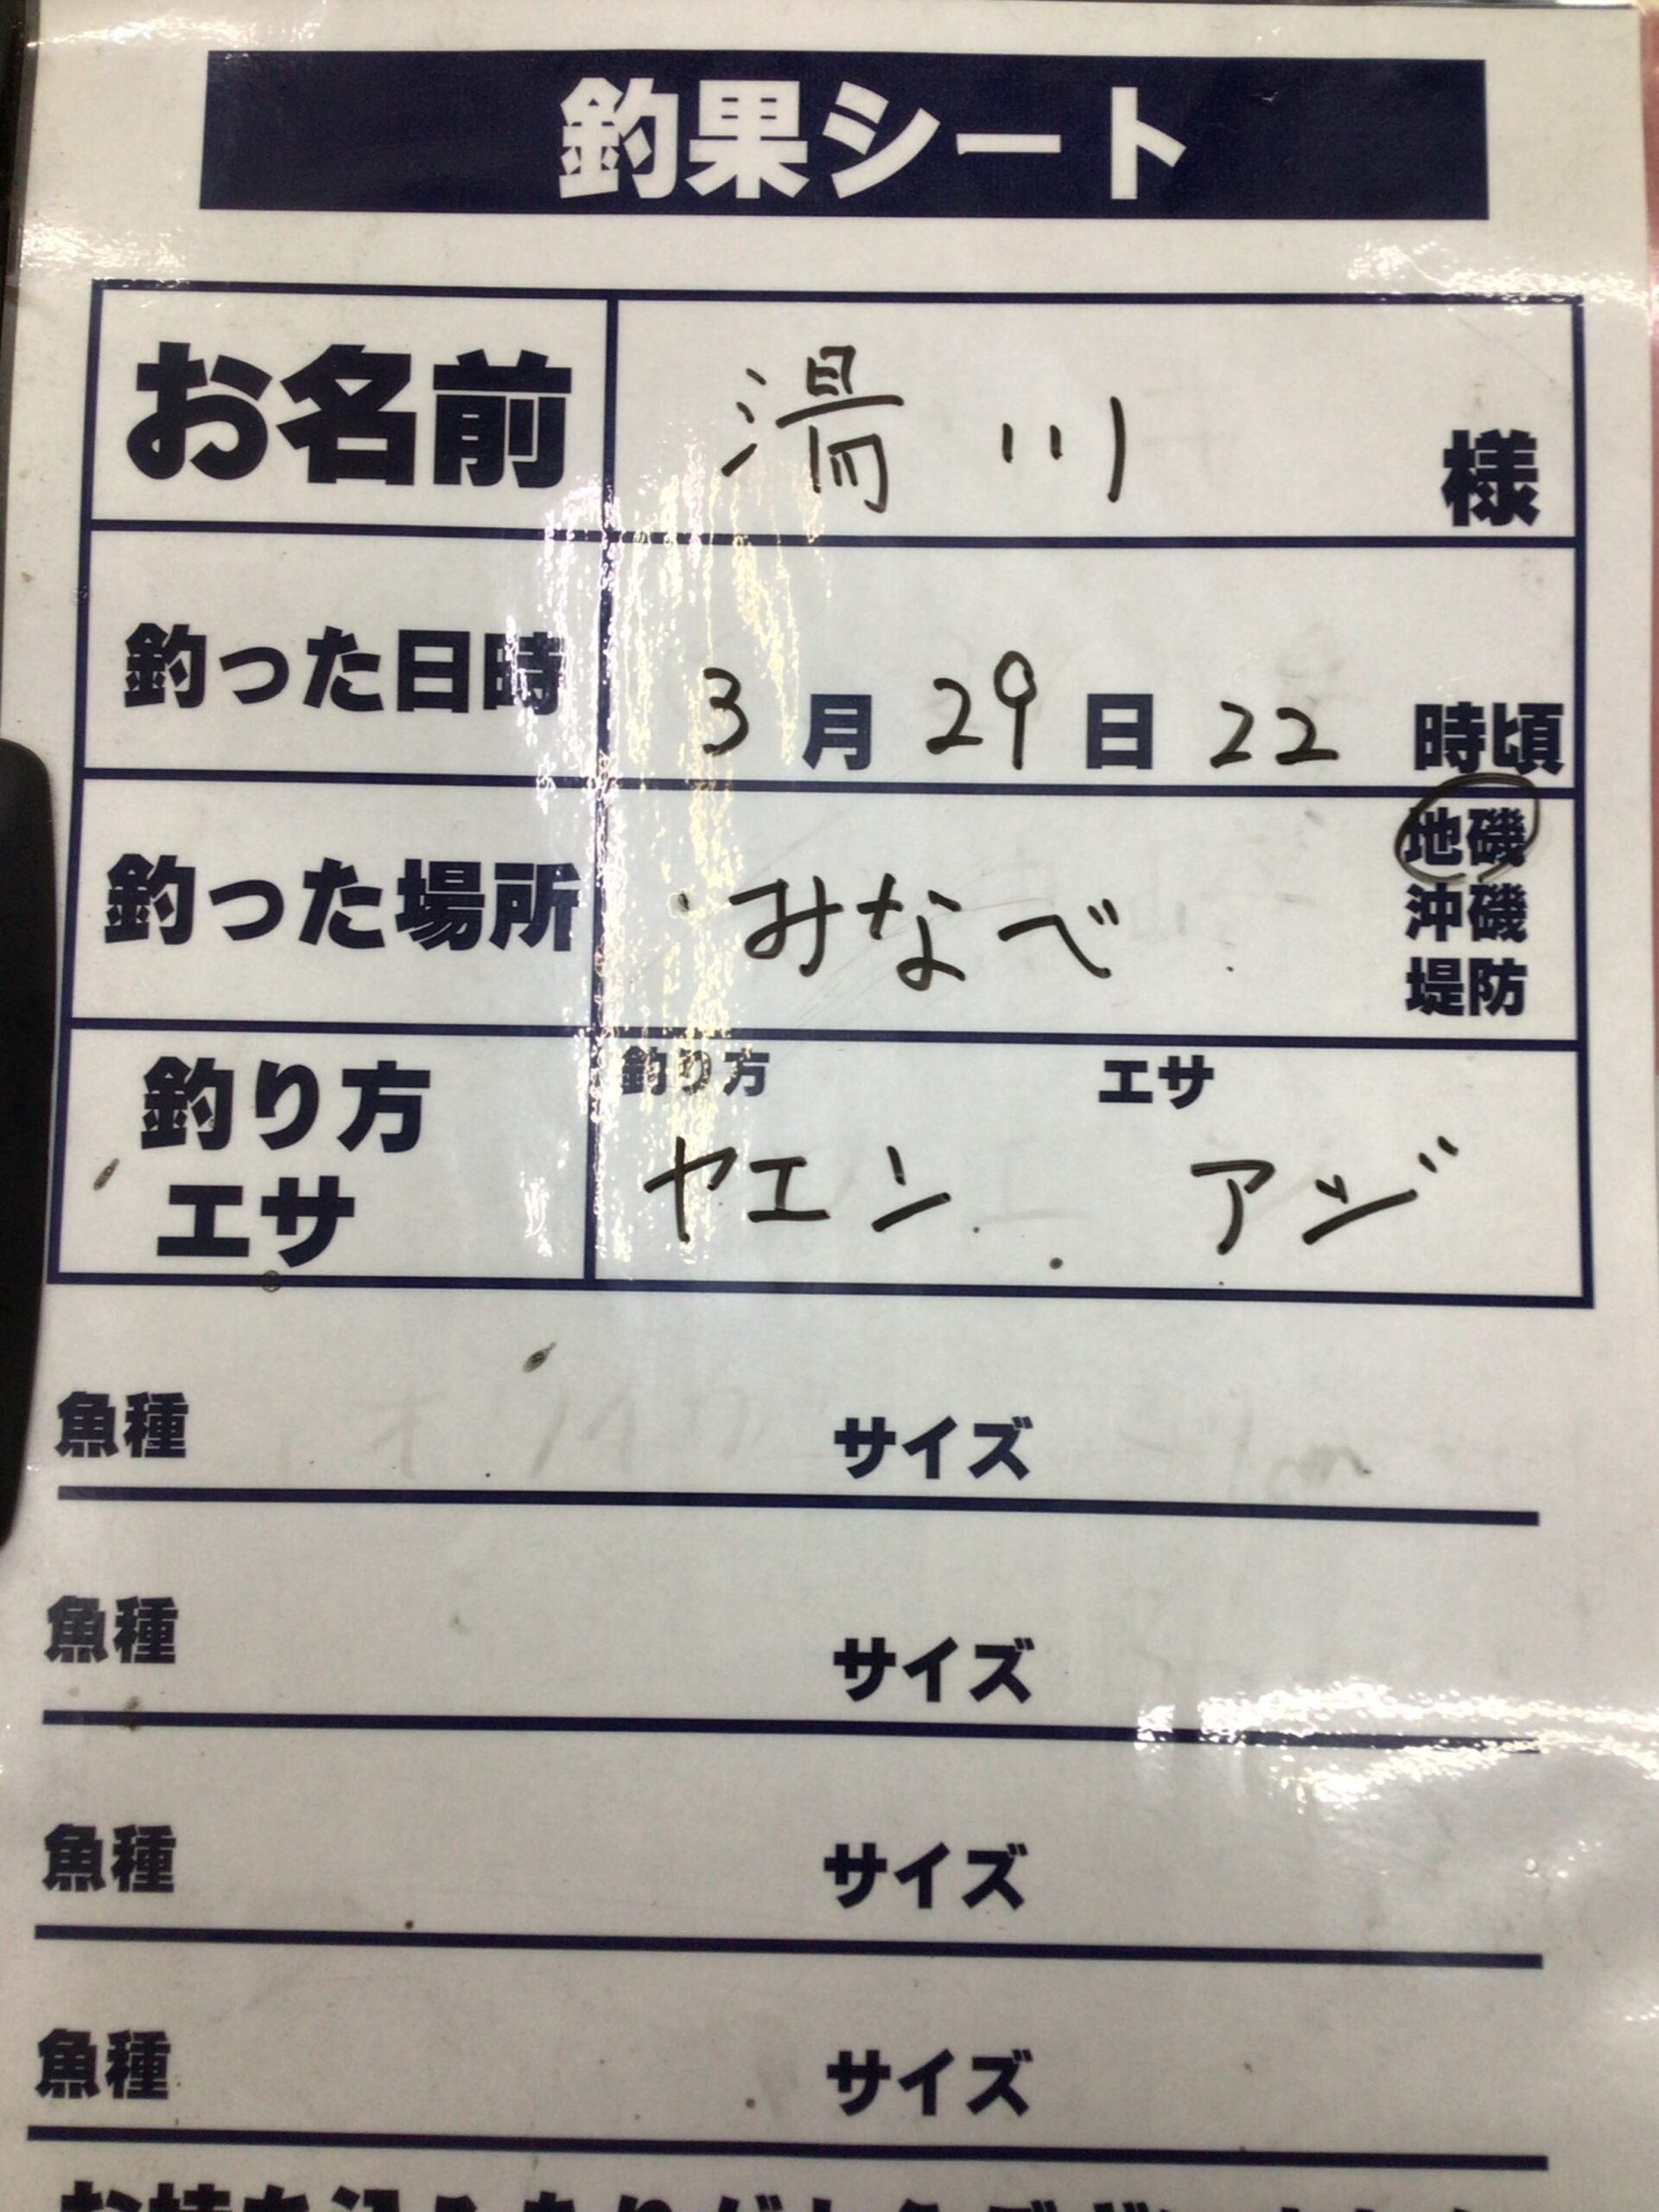 釣果シート
お名前 湯川 様
釣った日時 3月29日22時頃
釣った場所 みなべ 地磯
沖磯
堤防
釣り方 エサ 釣り方 エサ
ヤエン アジ
魚種 サイズ
魚種 サイズ
魚種 サイズ
魚種 サイズ